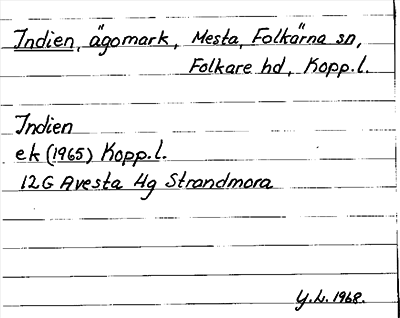 Indien, ägomark, Mesta, Folkärna sn,
Folkare hd, Kopp.l.
Indien
ek (1965) Kopp.l.
12G Avesta 4g Strandmora
Y.L. 1968.